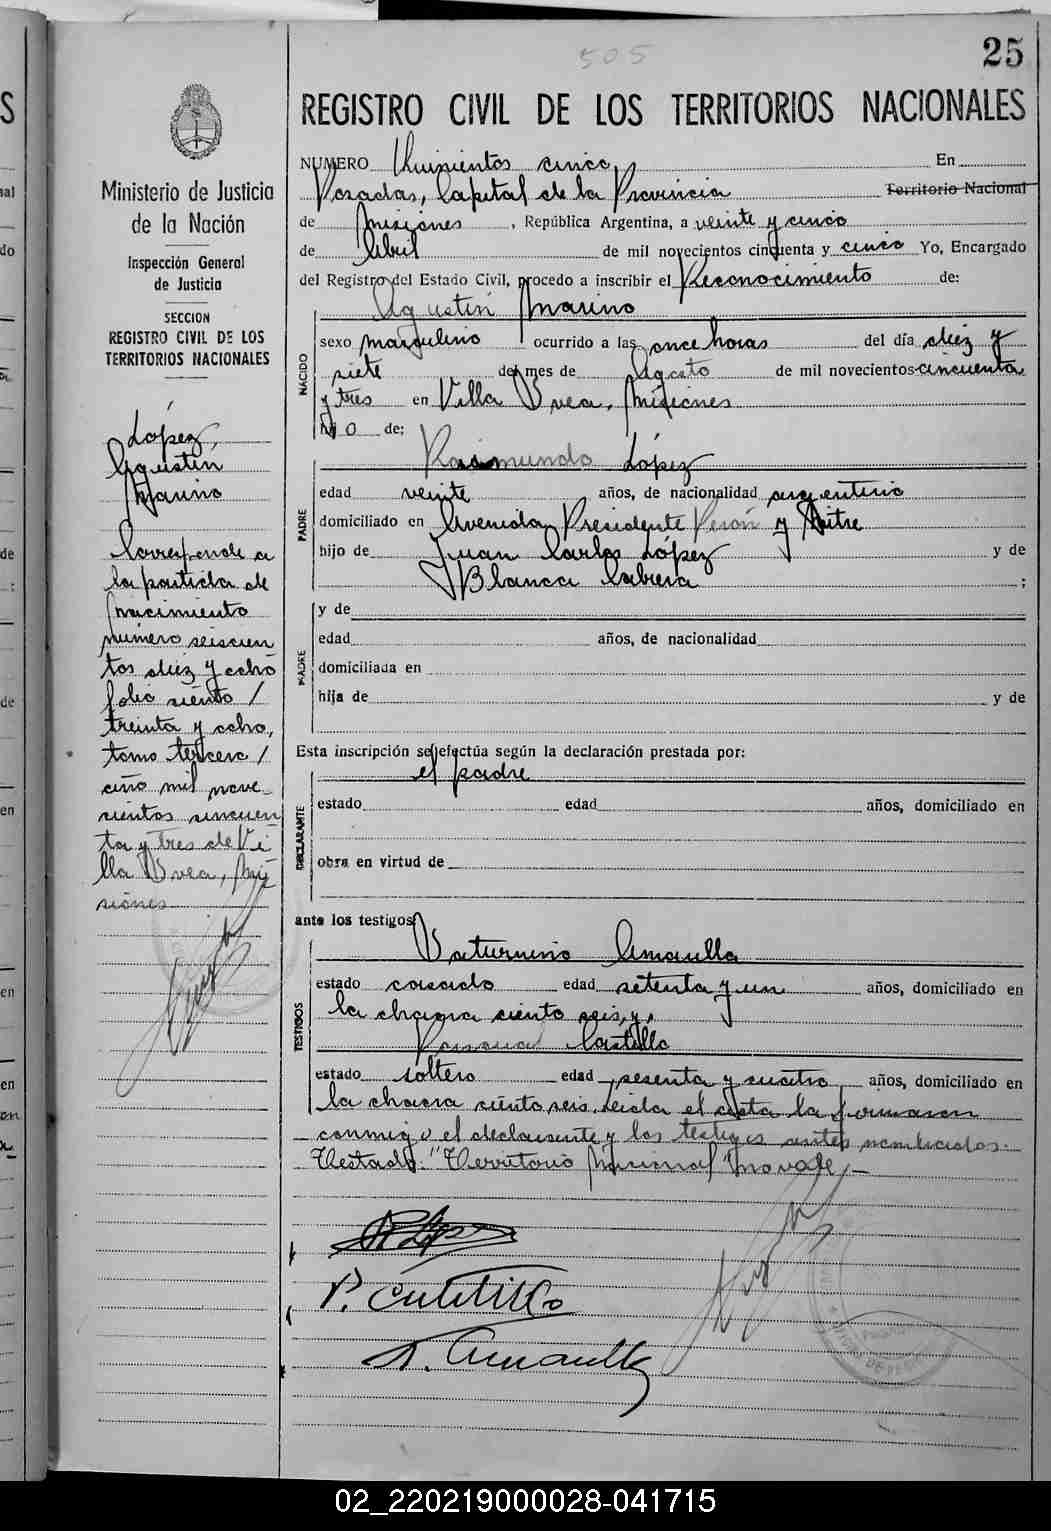 505
25
REGISTRO CIVIL DE LOS TERRITORIOS NACIONALES
Ministerio de Justicia
de la Nación
Inspección General
de Justicia
SECCION
REGISTRO CIVIL DE LOS
TERRITORIOS NACIONALES
López,
Agustín
Marino
Corresponde a
la partida de
nacimiento
número seiscien
tos diez y ocho
folio siento /
treinta y ocho,
tomo tercero /
año mil nove-
cientos sincuen
ta y tres de Vi
lla Svea, Mi
siones
NUMERO Quinientos cinco En
Posadas, Capital de la Provincia Territorio Nacional
de Misiones, República Argentina, a veinte y cinco
de Abril de mil novecientos cincuenta y cinco Yo, Encargado
del Registro del Estado Civil, procedo a inscribir el Reconocimiento de:
Agustín Marino
NACIDO
sexo masculino ocurrido a las once horas del día diez y
siete del mes de Agosto de mil novecientos cincuenta
y tres en Villa Svea, Misiones
hijo de:
PADRE
Raimundo López
edad veinte años, de nacionalidad argentino
domiciliado en Avenida Presidente Perón y Mitre
hijo de Juan Carlos López y de
Blanca Cabrera ;
MADRE
y de
edad años, de nacionalidad
domiciliada en
hija de y de
Esta inscripción se efectúa según la declaración prestada por:
el padre
DECLARANTE
estado edad años, domiciliado en
obra en virtud de
ante los testigos:
TESTIGOS
Saturnino Amarilla
estado casado edad setenta y un años, domiciliado en
la chacra ciento seis, y,
Castillo
estado soltero edad sesenta y cuatro años, domiciliado en
la chacra ciento seis. Leida el acta la firmaron
conmigo el declarante y los testigos antes nombrados.
Testado: "Territorio Nacional" no vale,-
P. Castillo
S. Amarilla
02_220219000028-041715